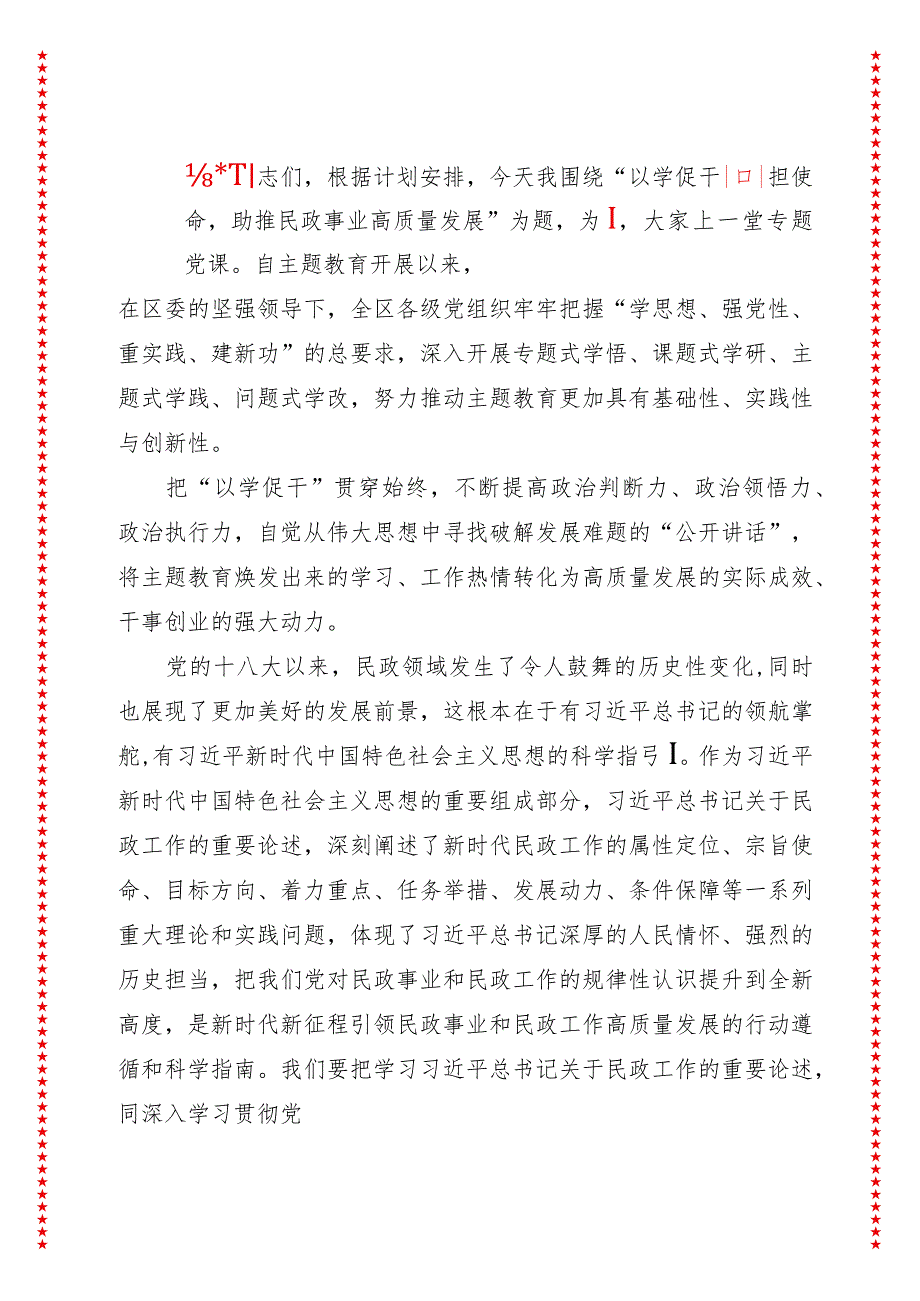 ⅛*T|志们，根据计划安排，今天我围绕“以学促干|口|担使
命，助推民政事业高质量发展”为题，为I，大家上一堂专题
党课。自主题教育开展以来，
在区委的坚强领导下，全区各级党组织牢牢把握“学思想、强党性、
重实践、建新功”的总要求，深入开展专题式学悟、课题式学研、主
题式学践、问题式学改，努力推动主题教育更加具有基础性、实践性
与创新性。
把“以学促干”贯穿始终，不断提高政治判断力、政治领悟力、
政治执行力，自觉从伟大思想中寻找破解发展难题的“公开讲话”，
将主题教育焕发出来的学习、工作热情转化为高质量发展的实际成效、
干事创业的强大动力。
党的十八大以来，民政领域发生了令人鼓舞的历史性变化,同时
也展现了更加美好的发展前景，这根本在于有习近平总书记的领航掌
舵,有习近平新时代中国特色社会主义思想的科学指弓I。作为习近平
新时代中国特色社会主义思想的重要组成部分，习近平总书记关于民
政工作的重要论述，深刻阐述了新时代民政工作的属性定位、宗旨使
命、目标方向、着力重点、任务举措、发展动力、条件保障等一系列
重大理论和实践问题，体现了习近平总书记深厚的人民情怀、强烈的
历史担当，把我们党对民政事业和民政工作的规律性认识提升到全新
高度，是新时代新征程引领民政事业和民政工作高质量发展的行动遵
循和科学指南。我们要把学习习近平总书记关于民政工作的重要论述，
同深入学习贯彻党